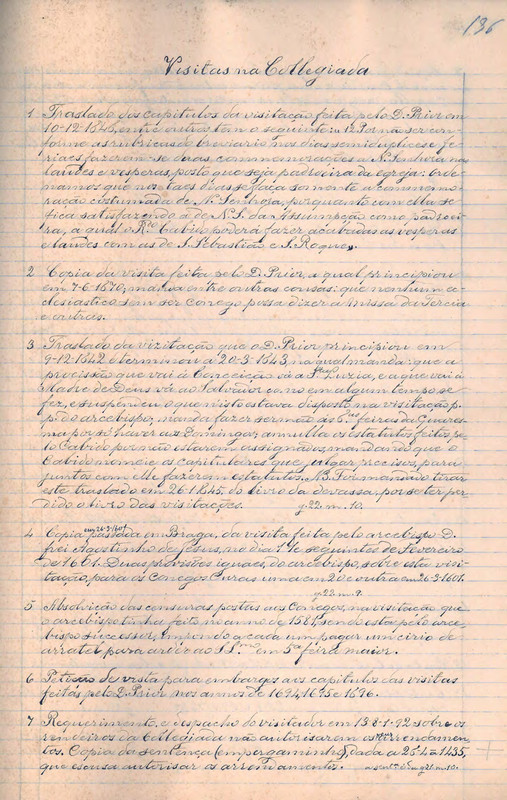 136
Visitas na Collegiada
1 Traslado dos capitulos da visitação feita pelo D. Prior em
10-12-1845, entre outros, tem o seguinte: 12 Por não ser con-
forme as rubricas do breviario nos dias semiduplices e fe-
riaes fazerem-se duas commemorações a N. Senhora nas
laudes e vesperas, posto que seja padroeira da egreja: orde-
namos que nos taes dias se faça somente a commemo-
ração costumada de N. Senhora, porquanto com ella se
fica satisfazendo á de N. S. da Assumpção como padroei-
ra, a qual o R.do Cabido poderá fazer acabadas as vesperas
e laudes com as de S. Sebastião e S. Roque».
2 Copia da visita feita pelo D. Prior, a qual principiou
em 7-6-1670, manda entre outras cousas: que nenhum ec-
clesiastico sem ser conego possa dizer a Missa da Tercia
e outras.
3 Traslado da vizitação que o D. Prior principiou em
9-12-1542 e terminou a 20-3-1543, na qual manda: que a
procissão que vai á Conceição vá a Santa Luzia, e a que vai á
Madre de Deus vá ao Salvador como em algum tempo se
fez, e suspendeu o que nisto estava disposto na visitação p.p.
do arcebispo; manda fazer sermão ás 5.as feiras da Quares-
ma por já haver aos Domingos; annulla os estatutos feitos pe-
lo Cabido por não estarem assignados, mandando que o
Cabido nomeie os capitulares que julgar precisos, para
juntos com elle fazerem estatutos. NB. Foi mandado tirar
este traslado em 26-1-1645, do livro da devassa, por se ter per-
dido o livro das visitações. g. 22. m. 10.
4 Copia passada em 26-3-1607 em Braga, da visita feita pelo arcebispo D.
frei Agostinho de Jesus, no dia 1 e seguintes de Fevereiro
de 1601. Duas provisões iguaes, do arcebispo, sobre esta visi-
tação, para os Conegos Curas uma em 20 e outra em 26-3-1601.
g. 22. m. 9.
5 Absolvição das censuras postas aos Conegos, na visitação que
o arcebispo tinha feito no anno de 1581, sendo esta pelo arce-
bispo successor, impondo a cada um pagar um cirio de
arratel para arder ao SS.mo em 5ª feira maior.
6 Petição de vista para embargos aos capitulos das visitas
feitas pelo D. Prior nos annos de 1694, 1695 e 1696.
7 Requerimento, e despacho do visitador em 13-8-1492 sobre os
rendeiros da Collegiada não autorisarem os seus arrendamen-
tos. Copia da sentença (em pergaminho), dada a 25-4-1435,
que escusa autorisar os arrendamentos.